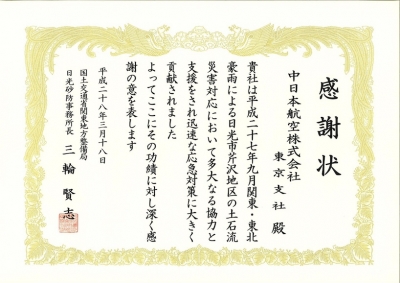 感謝状
中日本航空株式会社
東京支社 殿
貴社は平成二十七年九月関東・東北
豪雨による日光市芹沢地区の土石流
災害対応において多大なる協力と
支援をされ迅速な応急対策に大きく
貢献されました
よってここにその功績に対し深く感
謝の意を表します
平成二十八年三月十八日
国土交通省関東地方整備局
日光砂防事務所長 三輪賢志